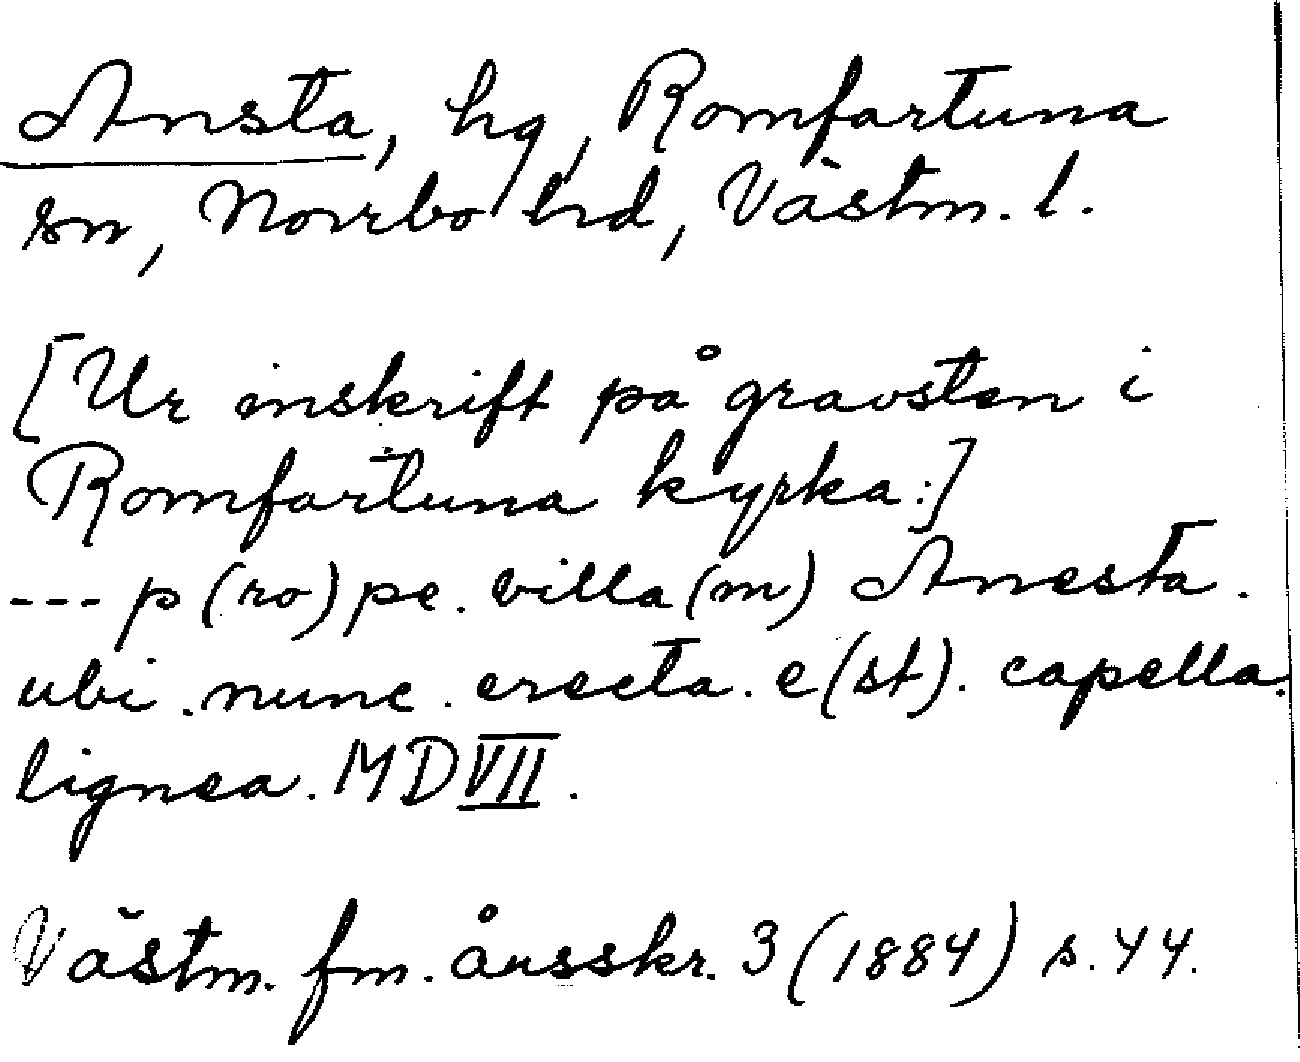 Ansta, hg, Romfartuna
sn, Norrbo hd, Västm. l.
[Ur inskrift på gravsten i
Romfartuna kyrka:]
--- p(ro)pe. villa(m) Anesta.
ubi. nunc. erecta. e(st). capella.
lignea. MDVII.
Västm. fm. årsskr. 3 (1884) s. 44.